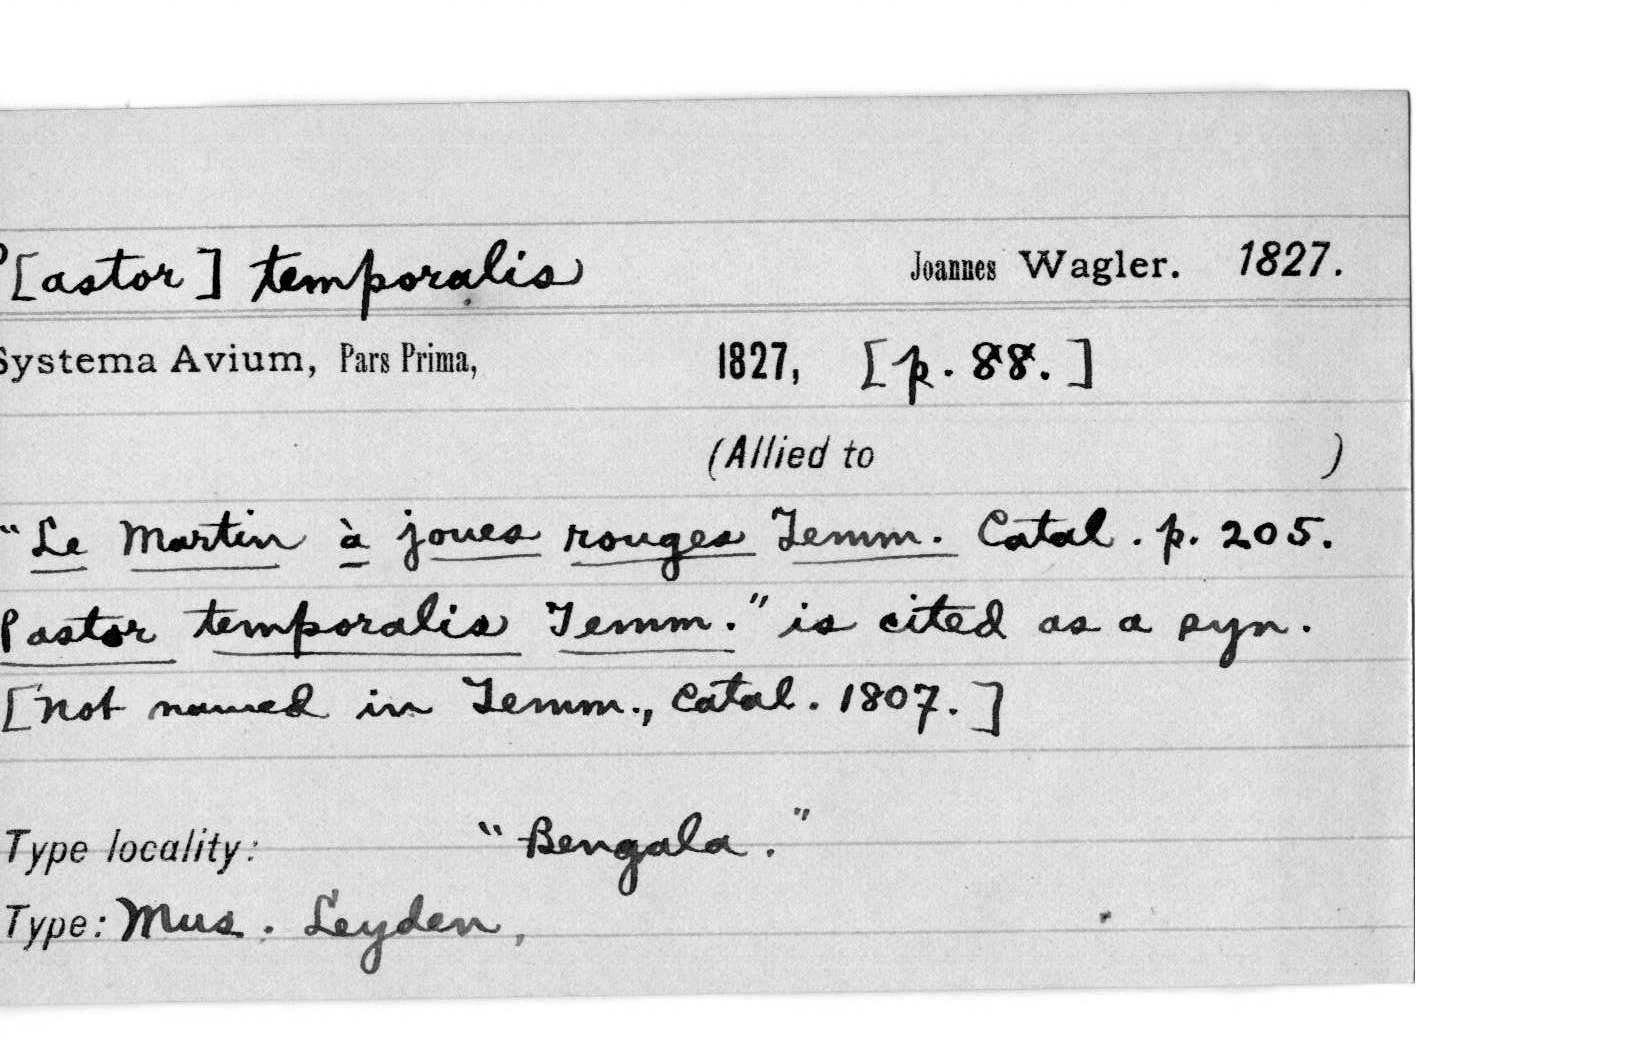 P[astor] temporalis Joannes Wagler. 1827.
Systema Avium, Pars Prima, 1827, [p. 88.]
(Allied to )
"Le Martin à joues rouges Temm. Catal. p. 205.
Pastor temporalis Temm." is cited as a syn.
[Not named in Temm., Catal. 1807.]
Type locality: "Bengala."
Type: Mus. Leyden,